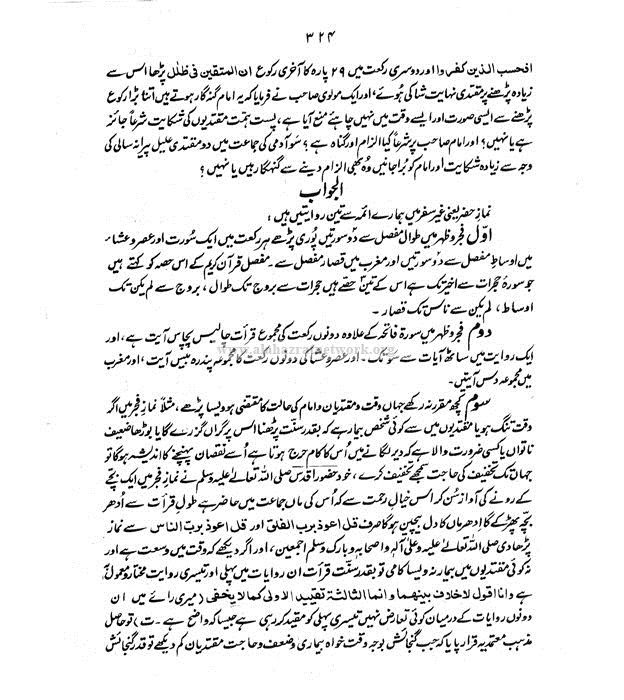 ۳۲۴
افحسب الذین کفروا اور دوسری رکعت میں ۲۹ پارہ کا آخری رکوع ان المتقین فی ظلل پڑھا اس سے
زیادہ پڑھنے پر مقتدی نہایت شاکی ہوئے، اور ایک مولوی صاحب نے فرمایا کہ یہ امام گنہگار ہوتے ہیں اتنا بڑا رکوع
پڑھنے سے ایسی صورت اور ایسے وقت میں نہیں چاہئے منع آیا ہے، پست ہمت مقتدیوں کی شکایت شرعاً جائز
ہے یا نہیں؟ اور امام صاحب پر شرعاً کیا الزام اور گناہ ہے؟ سو آدمی کی جماعت میں دو مقتدی علیل پیرانہ سالی کی
وجہ سے زیادہ شکایت اور امام کو بُرا جانیں وُہ بھی الزام دینے سے گنہگار ہیں یا نہیں؟
الجواب
نمازِ حضر یعنی غیر سفر میں ہمارے ائمہ سے تین روایتیں ہیں:
اوّل فجر و ظہر میں طوال مفصل سے دو سورتیں پُوری پڑھے ہر رکعت میں ایک سُورت اور عصر و عشاء
میں اوساطِ مفصل سے دو سورتیں اور مغرب میں قصار مفصل سے۔ مفصل قرآن کریم کے اس حصہ کو کہتے ہیں
جو سورۂ حجرات سے اخیر تک ہے اس کے تین حصے ہیں حجرات سے بروج تک طوال، بروج سے لم یکن تک
اوساط، لم یکن سے ناس تک قصار۔
دوم فجر و ظہر میں سورۃ فاتحہ کے علاوہ دونوں رکعت کی مجموع قرأت چالیس پچاس آیت ہے، اور
ایک روایت میں ساٹھ آیات سے سو تک۔ اور عصر و عشا کی دونوں رکعت کا مجموعہ پندرہ بیس آیت، اور مغرب
میں مجموعہ دس آیتیں۔
www.alahazratnetwork.org
سوم کچھ مقرر نہ رکھے جہاں وقت و مقتدیان و امام کی حالت کا مقتضی ہو ویسا پڑھے، مثلاً نمازِ فجر میں اگر
وقت تنگ ہو یا مقتدیوں میں سے کوئی شخص بیمار ہے کہ بقدر سنّت پڑھنا اس پر گراں گزرے گا یا بوڑھا ضعیف
ناتواں یا کسی ضرورت والا ہے کہ دیر لگانے میں اُس کا کام حرج ہوتا ہے اُسے نقصان پہنچنے کا اندیشہ ہوگا تو
جہاں تک تخفیف کی حاجت سمجھے تخفیف کرے، خود حضور اقدس صلی اللہ تعالٰی علیہ وسلم نے نمازِ فجر میں ایک بچّے
کے رونے کی آواز سُن کر اس خیال رحمت سے کہ اُس کی ماں جماعت میں حاضر ہے طولِ قرأت سے اُدھر
بچّہ پھڑکے گا ادھر ماں کا دل بیچین ہوگا صرف قل اعوذ برب الفلق اور قل اعوذ برب الناس سے نماز
پڑھا دی صلی اللہ تعالٰے علیہ وعلٰی آلہ واصحابہ وبارک وسلم اجمعین، اور اگر دیکھے کہ وقت میں وسعت ہے اور
نہ کوئی مقتدیوں میں بیمار نہ ویسا کامی تو بقدر سنّت قرأت ان روایات میں پہلی اور تیسری روایت مختار و معمول
ہے وانا اقول لاخلاف بینھما وانما الثالثۃ تقیید الاولٰی کما لایخفی (میری رائے میں ان
دونوں روایات کے درمیان کوئی تعارض نہیں تیسری پہلی کو مقید کر رہی ہے جیسا کہ واضح ہے۔ ت) تو حاصل
مذہب معتمد یہ قرار پایا کہ جب گنجائش بوجہ وقت خواہ بیماری و ضعف و حاجت مقتدیان کم دیکھے تو قدر گنجائش